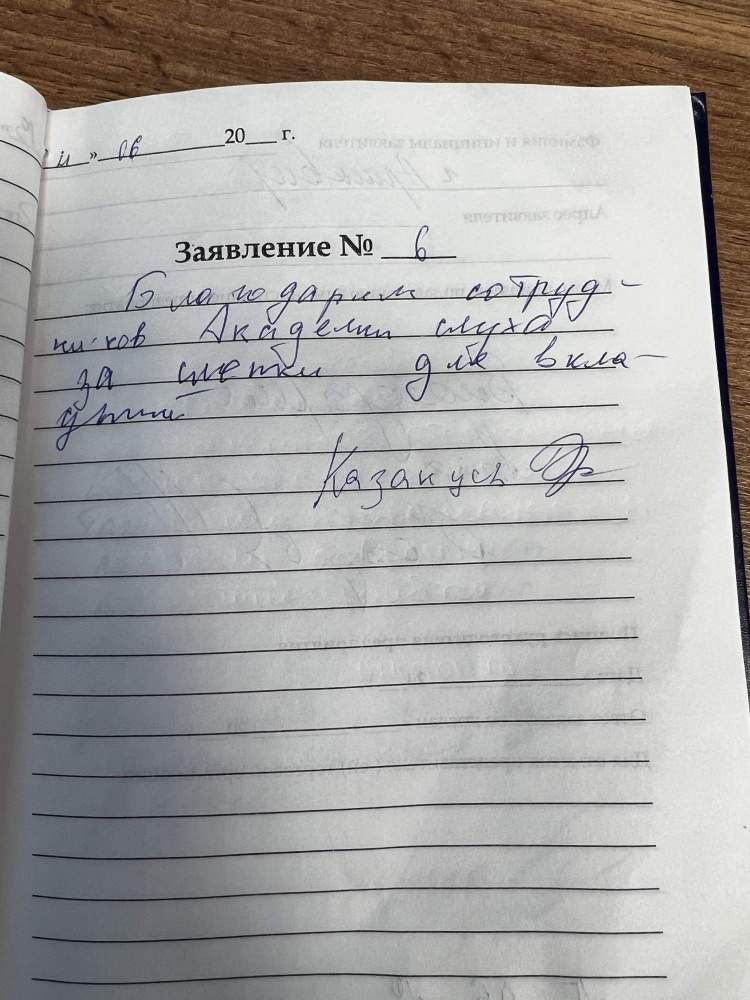 11 » 06 20___ г.
Заявление № 6
Благодарим сотруд-
ников Академии слуха
за щетки для вкла-
дышей
Казакусь